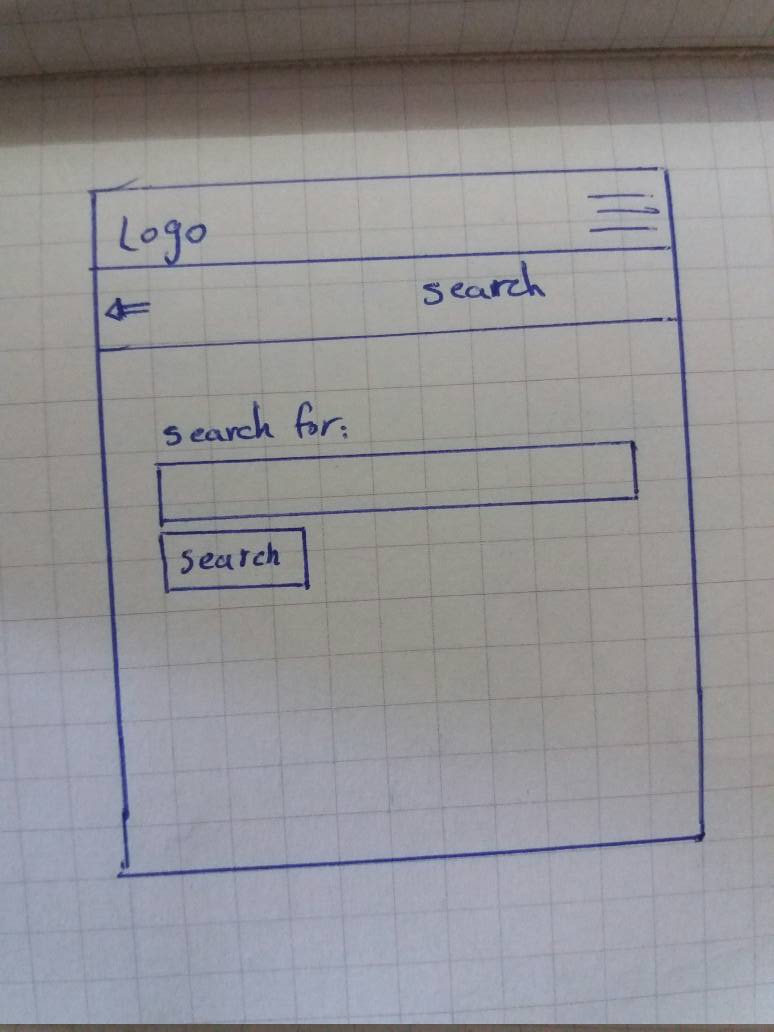 Logo
search
search for:
search